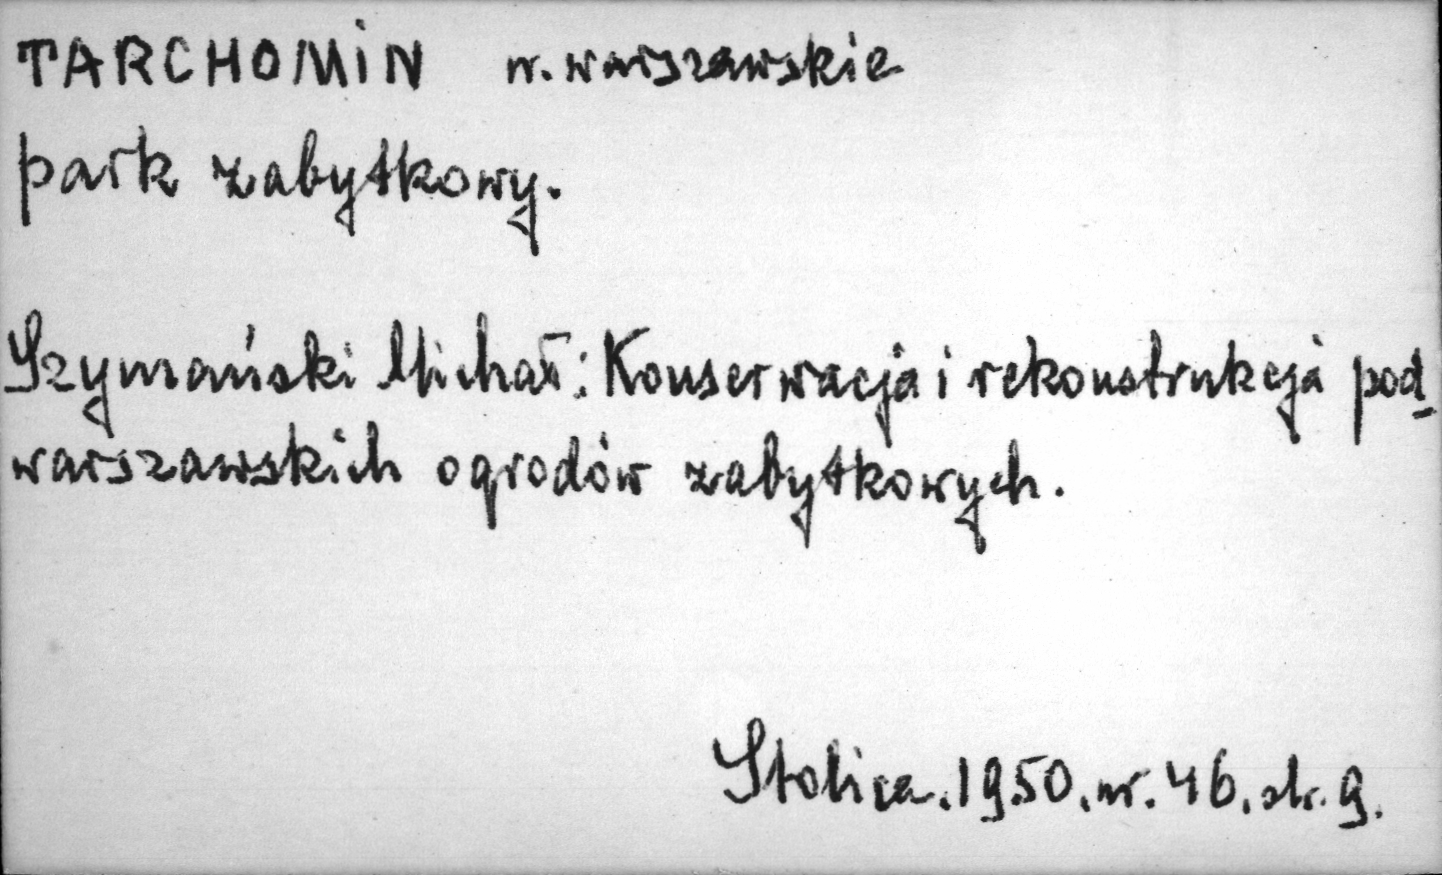 TARCHOMIN w. warszawskie
park zabytkowy.
Szymański Michał: Konserwacja i rekonstrukcja pod-
warszawskich ogrodów zabytkowych.
Stolica. 1950. nr. 46. str. 9.